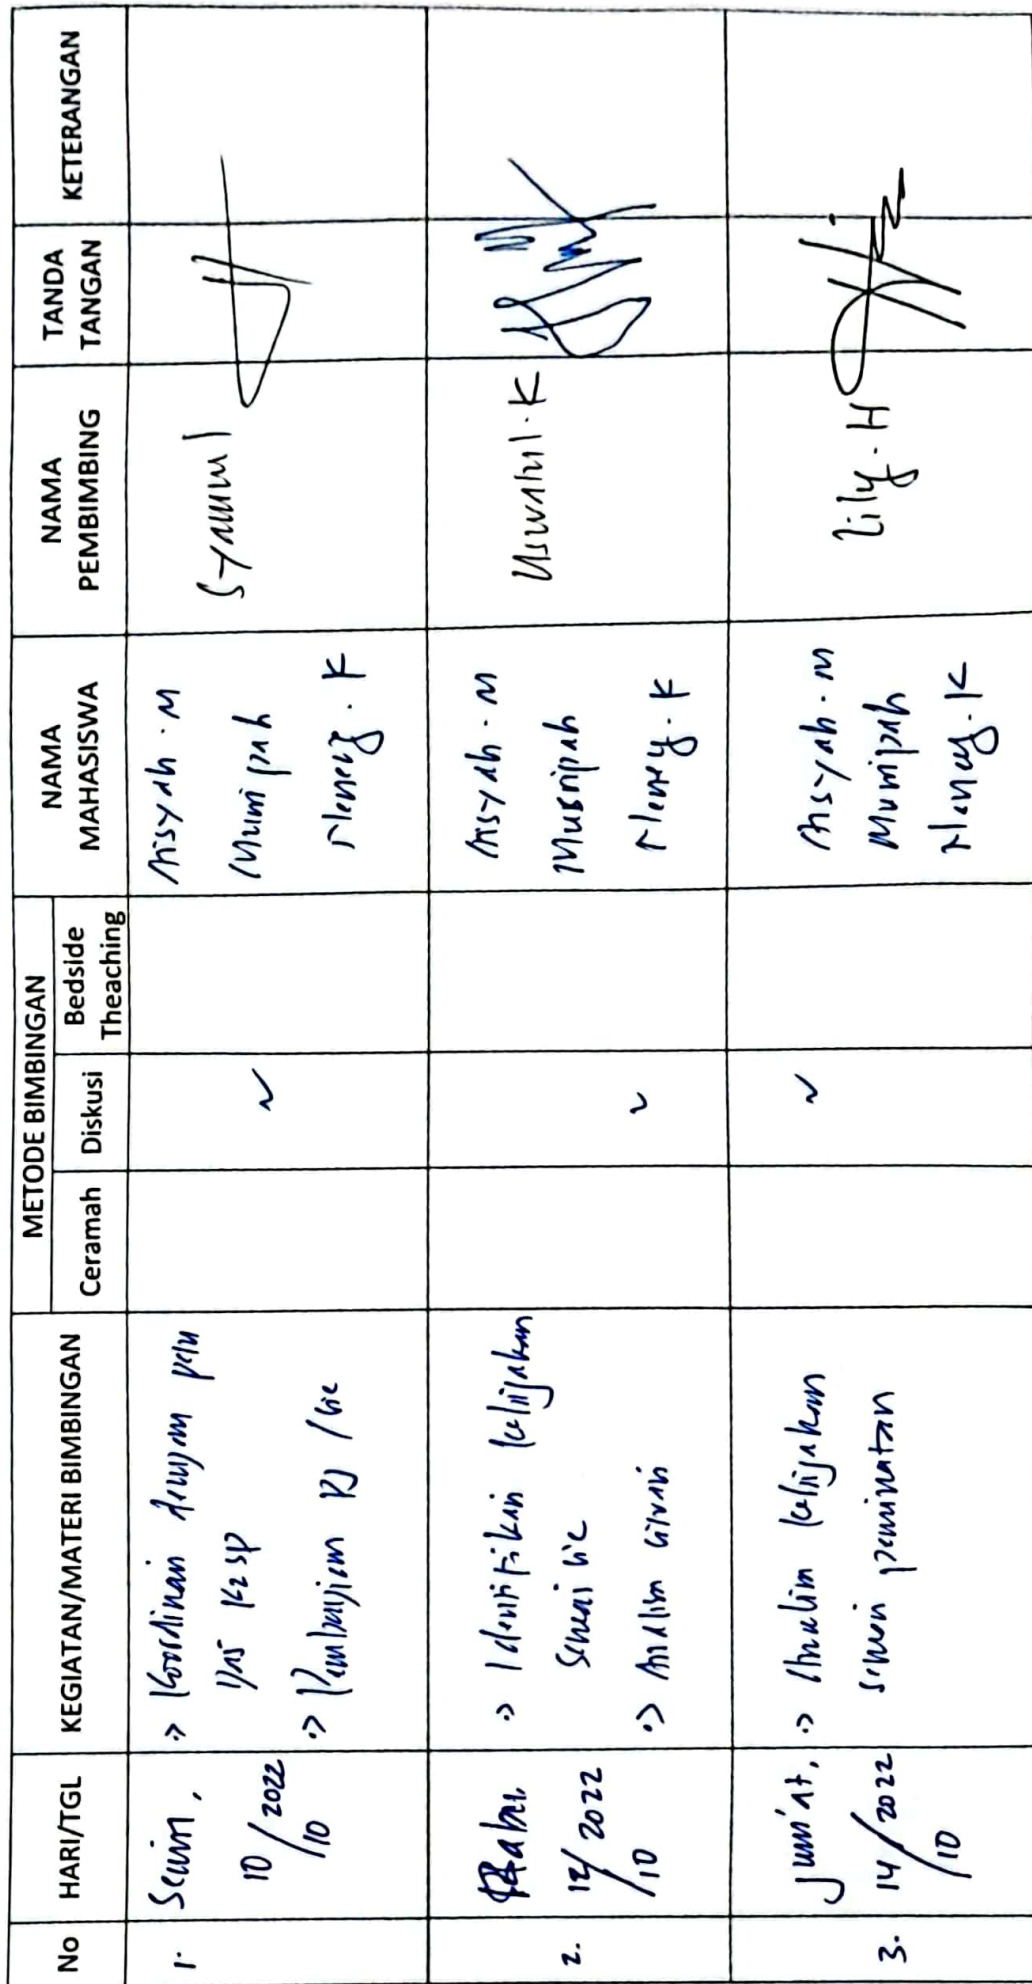 No
HARI/TGL
KEGIATAN/MATERI BIMBINGAN
METODE BIMBINGAN
Ceramah
Diskusi
Bedside
Theaching
NAMA
MAHASISWA
NAMA
PEMBIMBING
TANDA
TANGAN
KETERANGAN
1.
Senin,
10/10 2022
Koordinasi dengan
K2SP
Aisyah. M
Musripah
K
Syamsul
2.
Rabu
12/10 2022
Identifikasi kebijakan
sesuai
Analisis
Aisyah. M
Musripah
K
Uswatul. K
3.
Jum'at,
14/10 2022
Analisis kebijakan
sesuai peminatan
Aisyah. M
Musripah
K
Lily. H